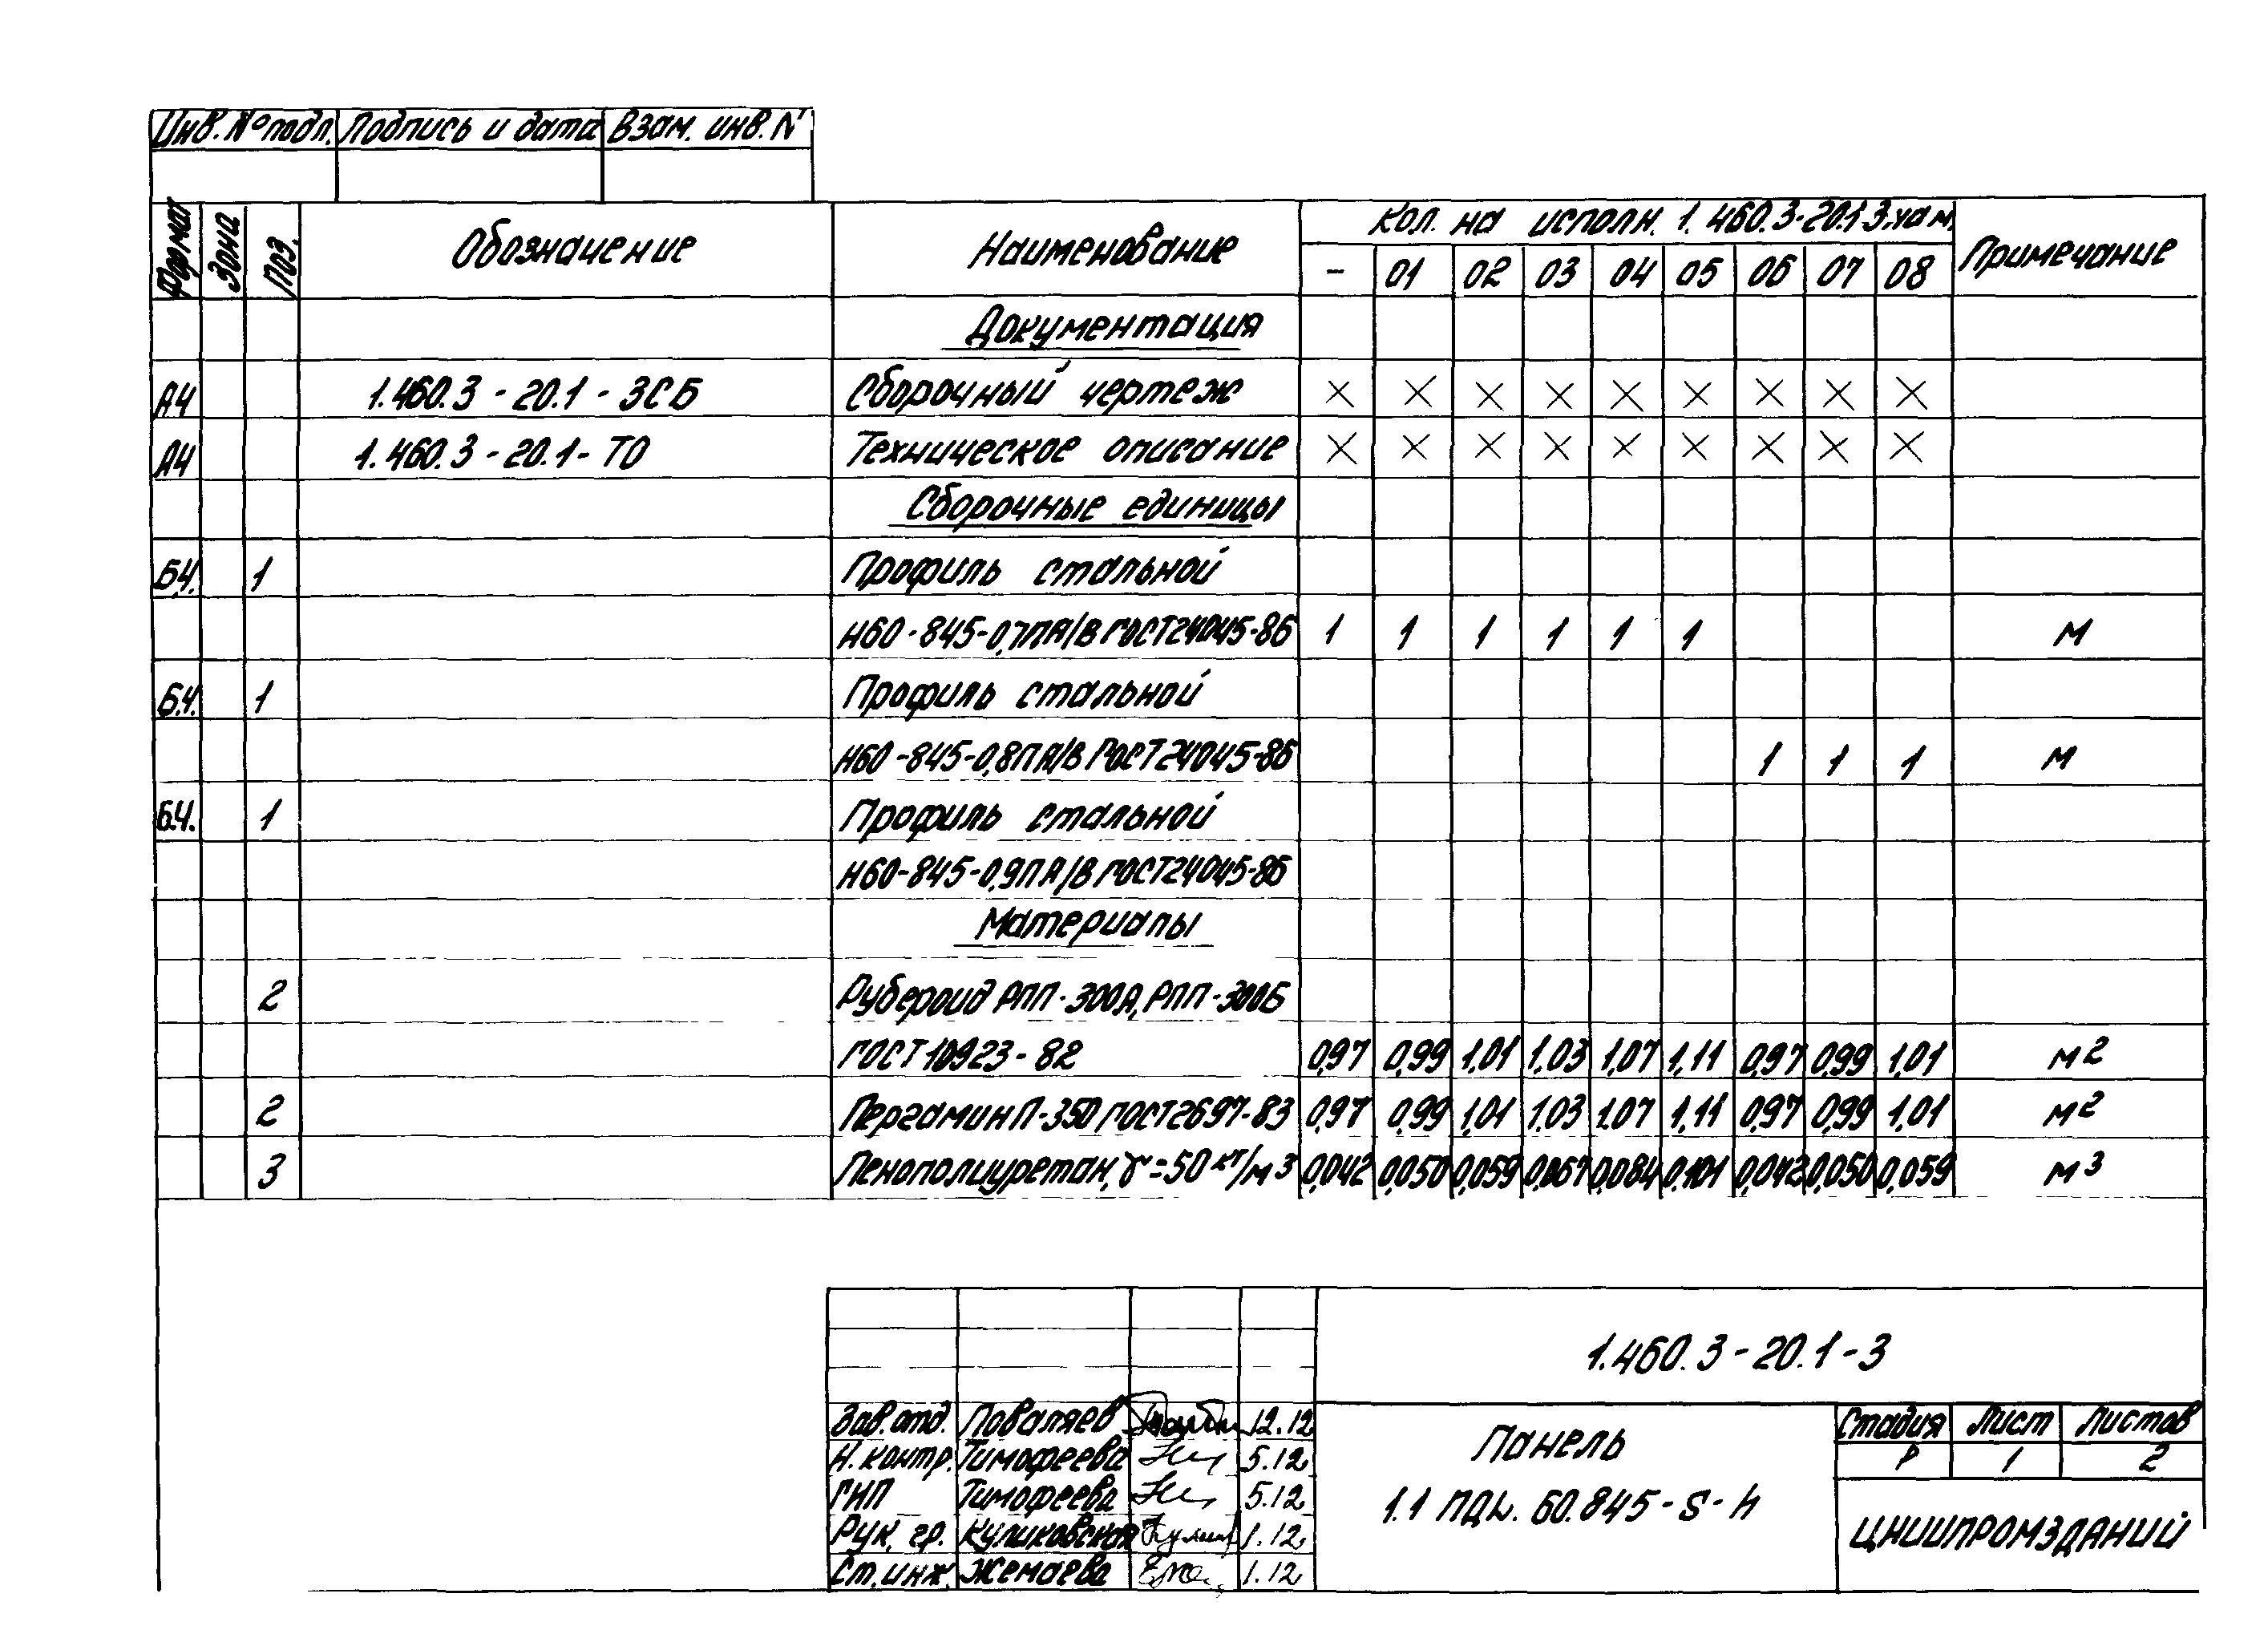 Инв. № подп. Подпись и дата Взам. инв. N
Формат Зона Поз. Обозначение Наименование Кол. на исполн. 1.460.3-20.1-3. Примечание
- 01 02 03 04 05 06 07 08
Документация
А4 1.460.3 - 20.1 - 3СБ Сборочный чертеж × × × × × × × × ×
А4 1.460.3 - 20.1 - ТО Техническое описание × × × × × × × × ×
Сборочные единицы
Б.Ч. 1 Профиль стальной
Н60-845-0,7ПА/В ГОСТ24045-86 1 1 1 1 1 1 м
Б.Ч. 1 Профиль стальной
Н60-845-0,8ПА/В ГОСТ24045-86 1 1 1 м
Б.Ч. 1 Профиль стальной
Н60-845-0,9ПА/В ГОСТ24045-86
Материалы
2 Рубероид РПП-300А, РПП-300Б
ГОСТ 10923-82 0,97 0,99 1,01 1,03 1,07 1,11 0,97 0,99 1,01 м2
2 Пергамин П-350 ГОСТ2697-83 0,97 0,99 1,01 1.03 1.07 1,11 0,97 0,99 1,01 м2
3 Пенополиуретан, γ=50 кг/м3 0,042 0,050 0,059 0,067 0,084 0,101 0,042 0,050 0,059 м3
1.460.3-20.1-3
Зав. отд. Поваляев 12.12
Н. контр. Тимофеева 5.12
ГИП Тимофеева 5.12
Рук. гр. Куликовская 1.12
Ст. инж. Жемаева 1.12
Панель
1.1 ПДН. 60.845-S-h
Стадия Лист Листов
Р 1 2
ЦНИИПРОМЗДАНИЙ